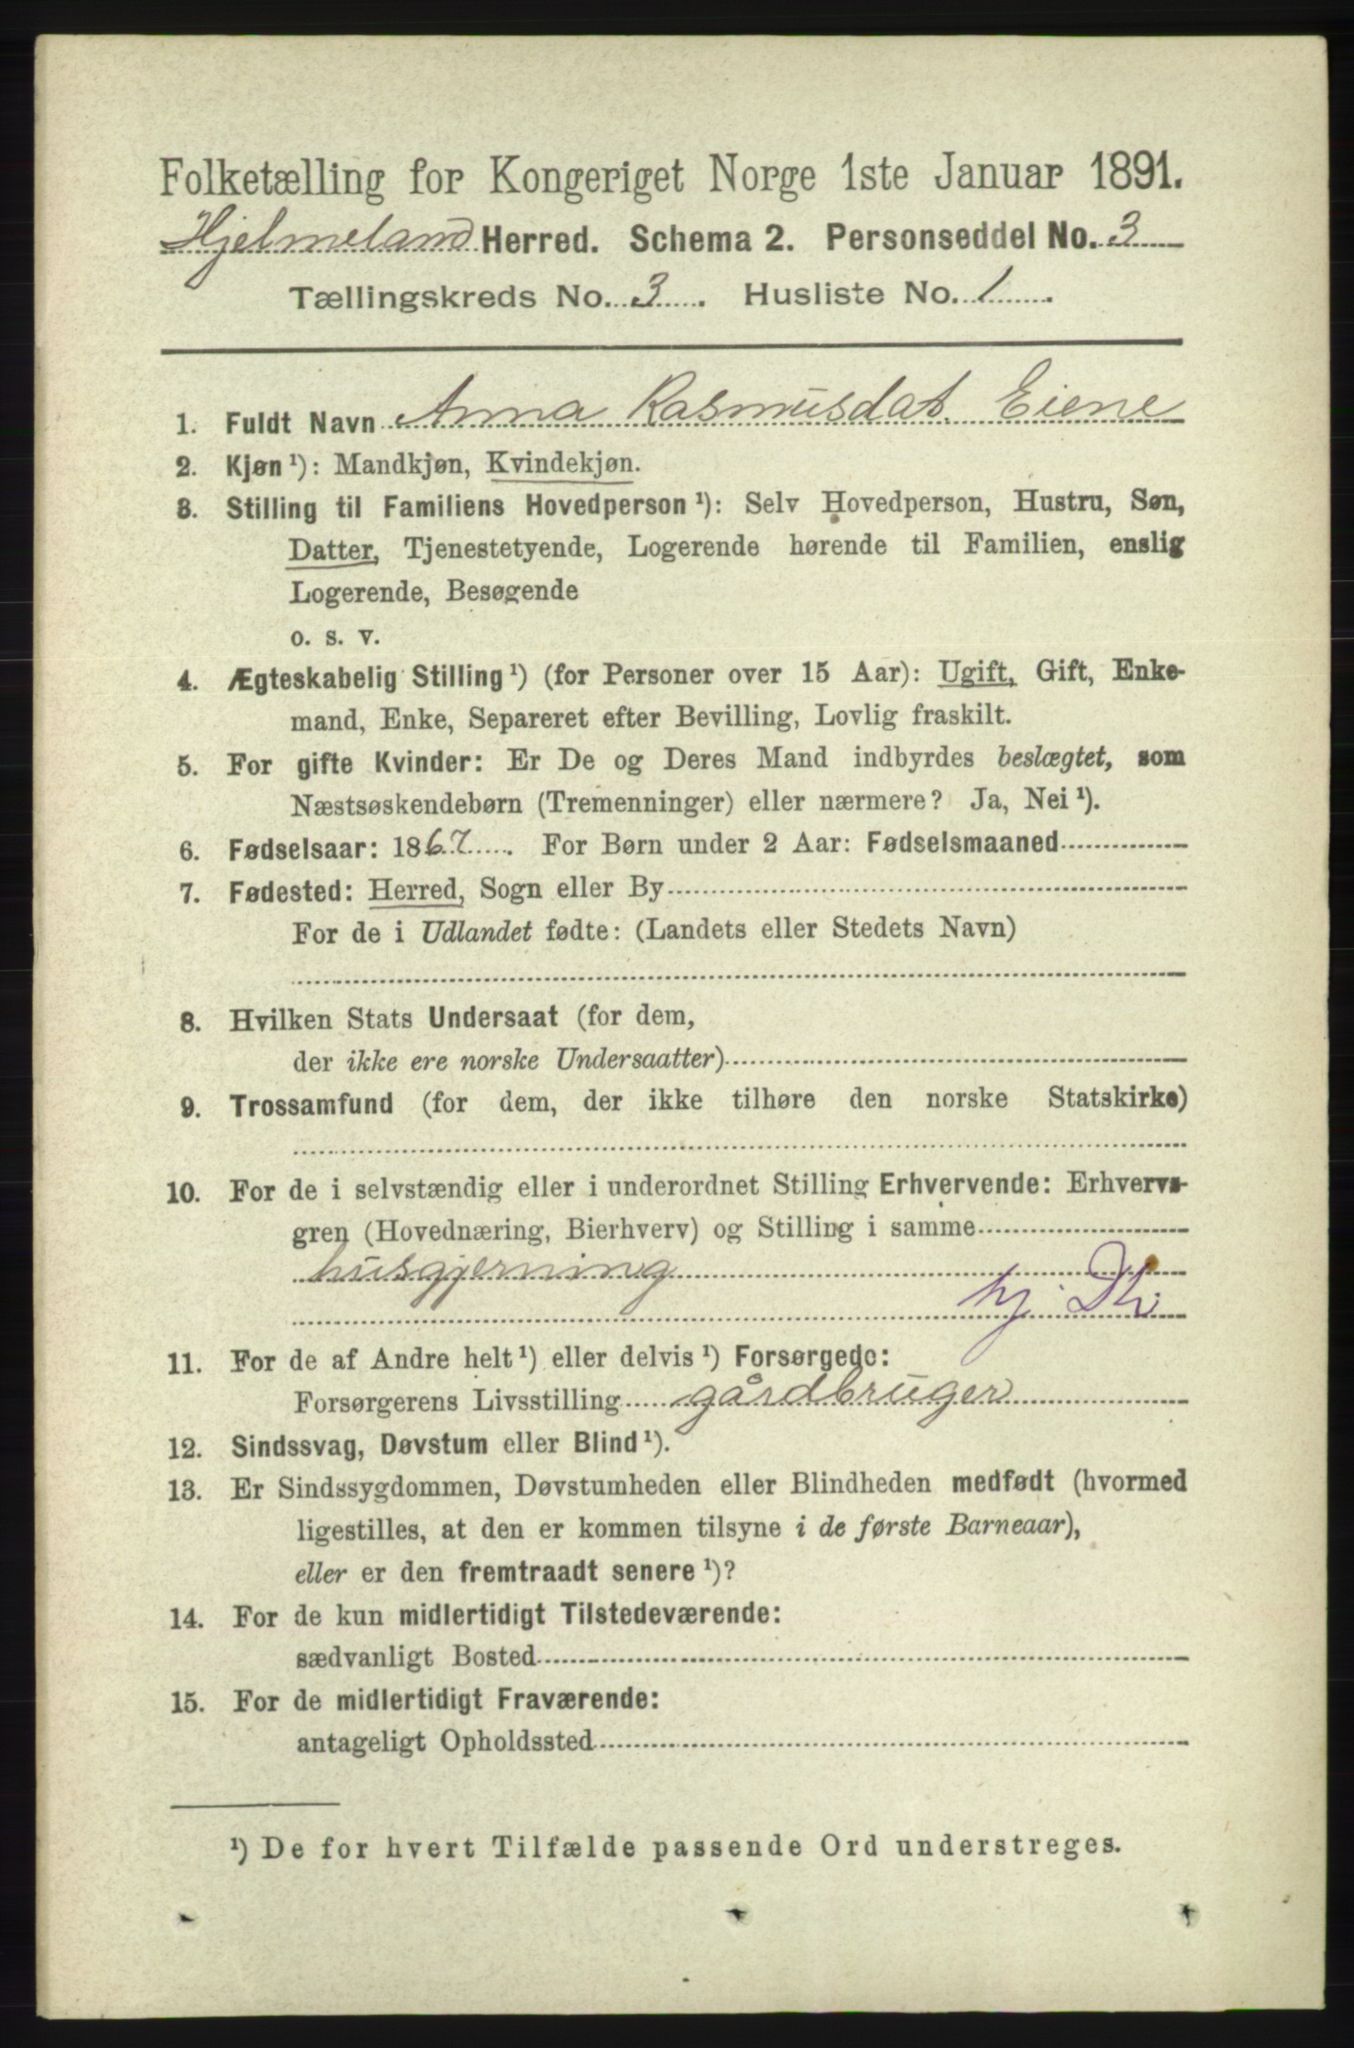 Folketælling for Kongeriget Norge 1ste Januar 1891.
Hjelmeland Herred. Schema 2. Personseddel No. 3
Tællingskreds No. 3. Husliste No. 1.
1. Fuldt Navn Anna Rasmusdat. Eiene
2. Kjøn ¹): Mandkjøn, Kvindekjøn.
3. Stilling til Familiens Hovedperson ¹): Selv Hovedperson, Hustru, Søn,
Datter, Tjenestetyende, Logerende hørende til Familien, enslig
Logerende, Besøgende
o. s. v.
4. Ægteskabelig Stilling ¹) (for Personer over 15 Aar): Ugift, Gift, Enke-
mand, Enke, Separeret efter Bevilling, Lovlig fraskilt.
5. For gifte Kvinder: Er De og Deres Mand indbyrdes beslægtet, som
Næstsøskendebørn (Tremenninger) eller nærmere? Ja, Nei ¹).
6. Fødselsaar: 1867. For Børn under 2 Aar: Fødselsmaaned
7. Fødested: Herred, Sogn eller By
For de i Udlandet fødte: (Landets eller Stedets Navn)
8. Hvilken Stats Undersaat (for dem,
der ikke ere norske Undersaatter)
9. Trossamfund (for dem, der ikke tilhøre den norske Statskirke)
10. For de i selvstændig eller i underordnet Stilling Erhvervende: Erhvervs-
gren (Hovednæring, Bierhverv) og Stilling i samme
husgjerning
11. For de af Andre helt ¹) eller delvis ¹) Forsørgede:
Forsørgerens Livsstilling gårdbruger
12. Sindssvag, Døvstum eller Blind ¹).
13. Er Sindssygdommen, Døvstumheden eller Blindheden medfødt (hvormed
ligestilles, at den er kommen tilsyne i de første Barneaar),
eller er den fremtraadt senere ¹)?
14. For de kun midlertidigt Tilstedeværende:
sædvanligt Bosted
15. For de midlertidigt Fraværende:
antageligt Opholdssted
¹) De for hvert Tilfælde passende Ord understreges.